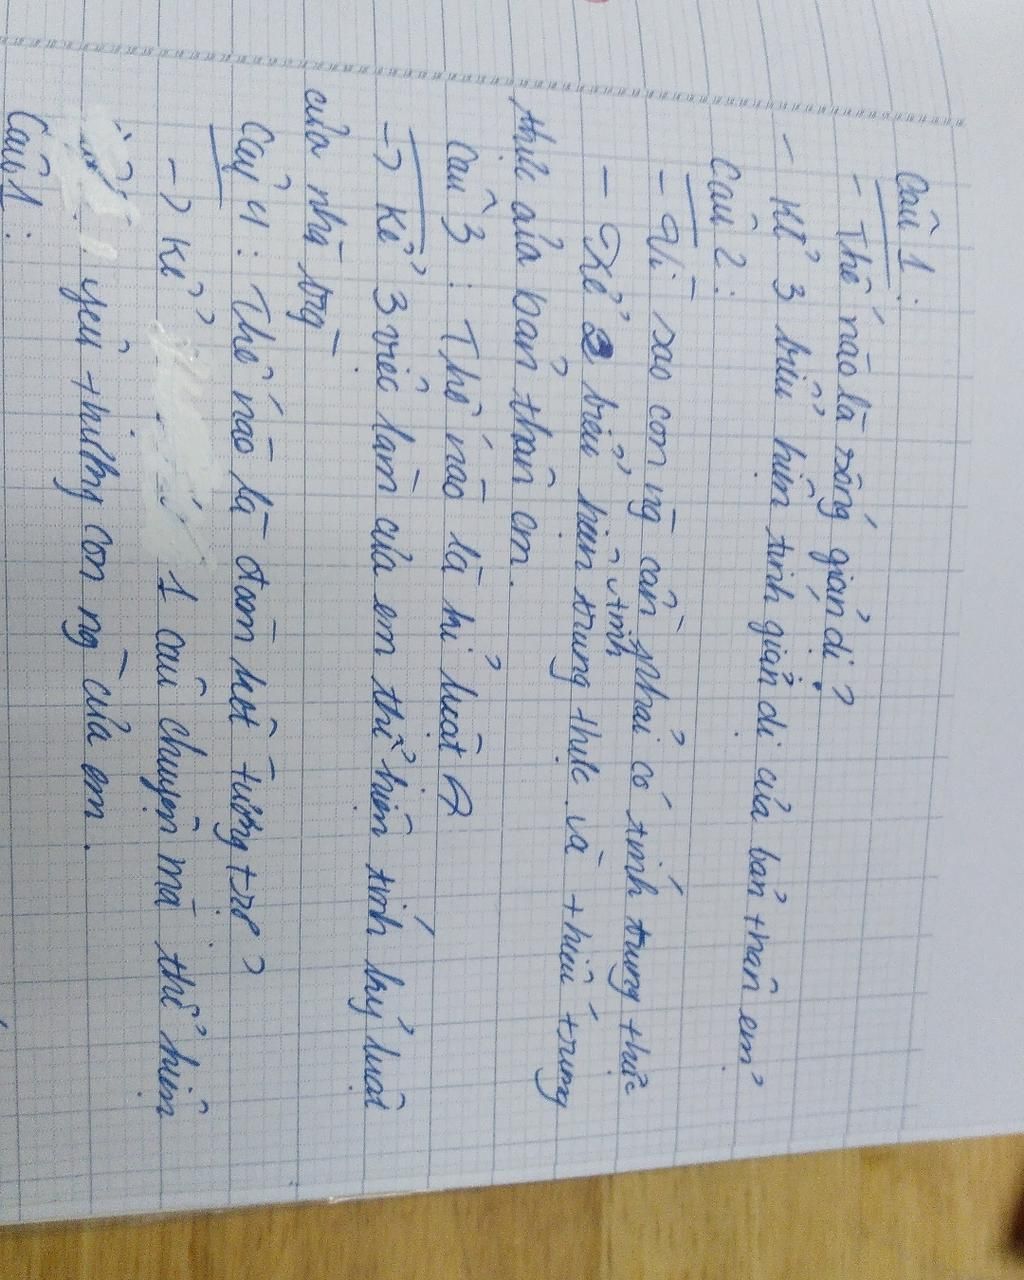 Câu 1:
- Thế nào là sống giản dị?
- Kể 3 biểu hiện tính giản dị của bản thân em?
Câu 2:
- Vì sao con ng` cần phải có tính trung thực
- Kể 3 biểu hiện tính trung thực và thiếu trung
thực của bản thân em.
Câu 3: Thế nào là kỉ luật
-> Kể 3 việc làm của em thể hiện tính kỷ luật
của nhà trg`
Câu 4: Thế nào là đoàn kết tương trợ?
-> Kể 1 câu chuyện mà thể hiện
yêu thương con ng` của em.
Câu 1: